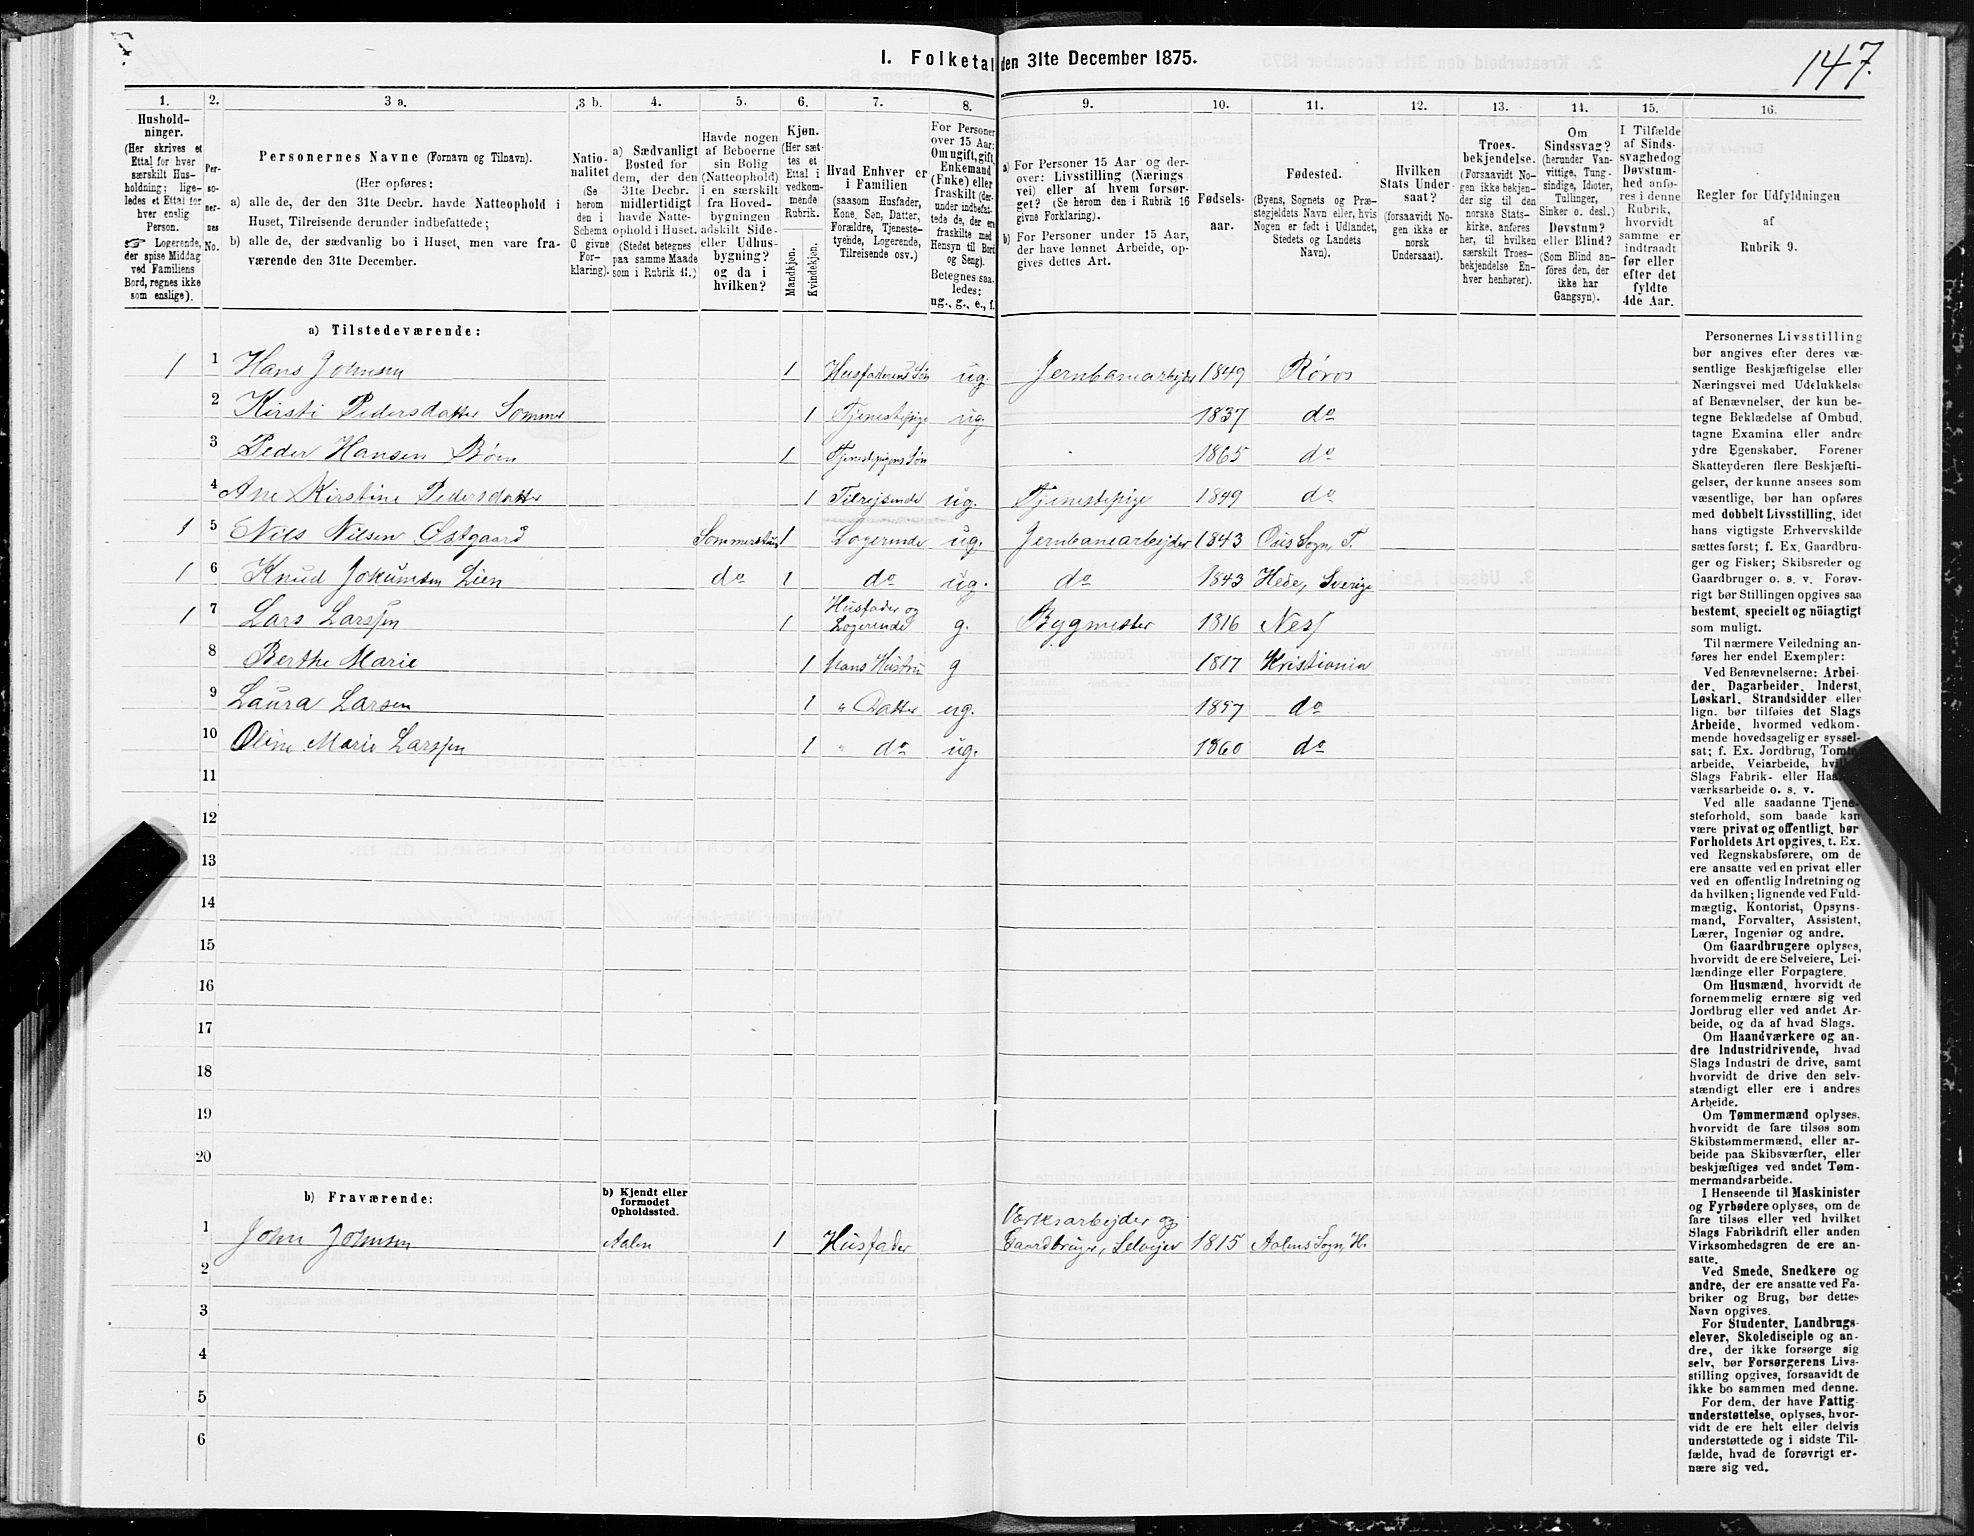 147.
I. Folketal den 31te December 1875.
1. 2. 3 a. 3 b. 4. 5. 6. 7. 8. 9. 10. 11. 12. 13. 14. 15. 16.
Hushold-
ninger.
(Her skrives et
Ettal for hver
særskilt Hus-
holdning; lige-
ledes et Ettal for
hver enslig
Person.
☞ Logerende,
der spise Middag
ved Familiens
Bord, regnes ikke
som enslige).
Per-
so-
ner-
nes
No.
Personernes Navne (Fornavn og Tilnavn).
(Her opføres:
a) alle de, der den 31te Decbr. havde Natteophold i
Huset, Tilreisende derunder indbefattede;
b) alle de, der sædvanlig bo i Huset, men vare fra-
værende den 31te December.
Natio-
nalitet
(Se
herom
den i
Schema
C givne
For-
klaring).
a) Sædvanligt
Bosted for
dem, der den
31te Decbr.
midlertidigt
havde Natte-
ophold i Huset.
(Stedet betegnes
paa samme Maade
som i Rubrik 11.)
Havde nogen
af Beboerne
sin Bolig
(Natteophold)
i en særskilt
fra Hoved-
bygningen
adskilt Side-
eller Udhus-
bygning?
og da i
hvilken?
Kjøn.
(Her sæt-
tes et
Ettal i
vedkom-
mende
Rubrik.
Mandkjøn.
Kvindekjøn.
Hvad Enhver er
i Familien
(saasom Husfader,
Kone, Søn, Datter,
Forældre, Tjeneste-
tyende, Logerende,
Tilreisende osv.)
For Personer
over 15 Aar:
Om ugift, gift,
Enkemand
(Enke) eller
fraskilt (der-
under indbefat-
tede de, der ere
fraskilte med
Hensyn til Bord
og Seng).
Betegnes saa-
ledes:
ug., g., e., f.
a) For Personer 15 Aar og der-
over: Livsstilling (Nærings-
vei) eller af hvem forsør-
get? (Se herom den i Rubrik 16
givne Forklaring).
b) For Personer under 15 Aar,
der have lønnet Arbeide, op-
gives dettes Art.
Fødsels-
aar.
Fødested.
(Byens, Sognets og Præ-
stegjeldets Navn eller, hvis
Nogen er født i Udlandet,
Stedets og Landets
Navn).
Hvilken
Stats Under-
saat?
(forsaavidt No-
gen ikke er
norsk
Undersaat).
Troes-
bekjendelse.
(Forsaavidt No-
gen ikke bekjen-
der sig til den
norske Stats-
kirke, anføres
her, til hvilken
særskilt Troes-
bekjendelse En-
hver henhører).
Om
Sindssvag?
(herunder Van-
vittige, Tung-
sindige, Idioter,
Tullinger,
Sinker o. desl.)
Døvstum?
eller Blind?
(Som Blind an-
føres den, der
ikke har
Gangsyn).
I Tilfælde
af Sinds-
svaghed og
Døvstum-
hed anfø-
res i denne
Rubrik,
hvorvidt
samme er
indtraadt
før eller
efter det
fyldte
4de Aar.
Regler for Udfyldningen
af
Rubrik 9.
a) Tilstedeværende:
1 1 Hans Johnsen 1 Husfaderens Søn ug. Jernbanearbejder 1849 Røros
2 Kirsti Pedersdatter Sommer 1 Tjenestepige ug 1837 do
3 Peder Hansen Bøen 1 Tjenestepigens Søn 1865 do
4 Ane Kirstine Pedersdatter 1 Tilrejsende ug. Tjenestepige 1849 do
1 5 Nils Nilsen Østgaard 1 Logerende ug. Jernbanearbejder 1843 Sogn, T.
1 6 Knud Jokumsen Lien do 1 do ug. do 1843 Hede, Sverige
1 7 Lars Larssen 1 Husfader og
Logerende g. Bygmester 1816 Ness
8 Berthe Marie 1 Hans Hustru g 1817 Kristiania
9 Laura Larsen 1 " Datter ug. 1857 do
10 Oline Marie Larssen 1 " do ug. 1860 do
11
12
13
14
15
16
17
18
19
20
b) Fraværende:
b) Kjendt eller
formodet
Opholdssted.
1 John Johnsen Aalen 1 Husfader Værksarbejder og
Gaardbruger, Selvejer 1815 Aalens Sogn, H.
2
3
4
5
6
Personernes Livsstilling
bør angives efter deres væ-
sentlige Beskjæftigelse eller
Næringsvei med Udelukkelse
af Benævnelser, der kun be-
tegne Beklædelse af Ombud,
tagne Examina eller andre
ydre Egenskaber. Forener
Skatteyderen flere Beskjæfti-
gelser, der kunne ansees som
væsentlige, bør han opføres
med dobbelt Livsstilling, idet
hans vigtigste Erhvervskilde
sættes først; f. Ex. Gaardbru-
ger og Fisker; Skibsreder og
Gaardbruger o. s. v. Forøv-
rigt bør Stillingen opgives saa
bestemt, specielt og nöiagtigt
som muligt.
Til nærmere Veiledning an-
føres her endel Exempler:
Ved Benævnelserne: Arbei-
der, Dagarbeider, Inderst,
Løskarl, Strandsidder eller
lign. bør tilføies det Slags
Arbeide, hvormed vedkom-
mende hovedsagelig er syssel-
sat; f. Ex. Jordbrug, Tomte-
arbeide, Veiarbeide, hvilket
Slags Fabrik- eller Haand-
værksarbeide o. s. v.
Ved alle saadanne Tjene-
steforhold, som baade kan
være privat og offentligt, bør
Forholdets Art opgives, t. Ex.
ved Regnskabsførere, om de
ere ansatte ved en privat eller
ved en offentlig Indretning og
da hvilken; lignende ved Fuld-
mægtig, Kontorist, Opsyns-
mand, Forvalter, Assistent,
Lærer, Ingeniør og andre.
Om Gaardbrugere oplyses,
hvorvidt de ere Selveiere, Lei-
lændinge eller Forpagtere.
Om Husmænd, hvorvidt de
fornemmelig ernære sig ved
Jordbrug eller ved andet Ar-
beide, og da af hvad Slags.
Om Haandværkere og an-
dre Industridrivende, hvad
Slags Industri de drive, samt
hvorvidt de drive den selv-
stændigt eller ere i andres
Arbeide.
Om Tømmermænd oplyses,
hvorvidt de fare tilsøs som
Skibstømmermænd, eller ar-
beide paa Skibsværfter, eller
beskjæftiges ved andet Tøm-
mermandsarbeide.
I Henseende til Maskinister
og Fyrbødere oplyses, om de
fare tilsøs eller ved hvilket
Slags Fabrikdrift eller anden
Virksomhedsgren de ere an-
satte.
Ved Smede, Snedkere og
andre, der ere ansatte ved Fa-
briker og Brug, bør dettes
Navn opgives.
For Studenter, Landbrugs-
elever, Skoledisciple og an-
dre, der ikke forsørge sig
selv, bør Forsørgerens Livs-
stilling opgives, forsaavidt de
ikke bo sammen med denne.
For dem, der have Fattig-
understøttelse, oplyses, hvor-
vidt de ere helt eller delvis
understøttede og i sidste Til-
fælde, hvad de forøvrigt er-
nære sig ved.